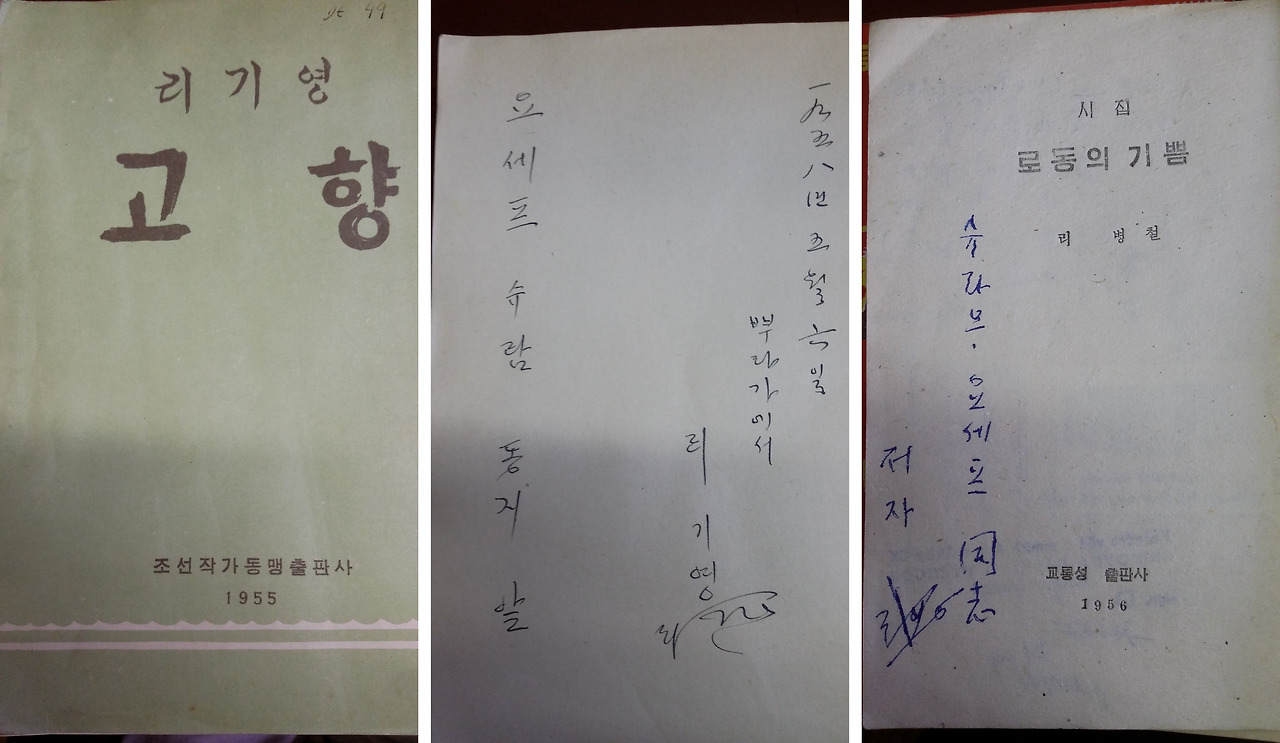 리기영
고향
조선작가동맹출판사
1955
요세프 슈람 동지 앞
一九五八년 五월 六일
뿌라가에서
리기영
시집
로동의 기쁨
리 병철
슈라므·요세프 同志
저자
교통성 출판사
1956